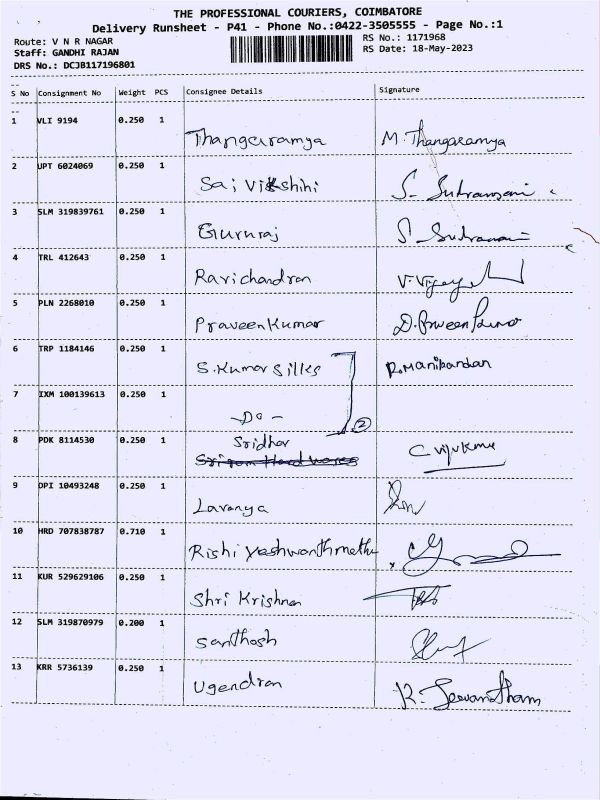 THE PROFESSIONAL COURIERS, COIMBATORE
Delivery Runsheet - P41 - Phone No.:0422-3505555 - Page No.:1
Route: V N R NAGAR
RS No.: 1171968
Staff: GANDHI RAJAN
RS Date: 18-May-2023
DRS No.: DCJB117196801
S No Consignment No Weight PCS Consignee Details Signature
1 VLI 9194 0.250 1
Thangaramya M. Thangaramya
2 UPT 6024069 0.250 1
Sai Vikshihi S-
3 SLM 319839761 0.250 1
Gururaj S
4 TRL 412643 0.250 1
Ravichandran V.
5 PLN 2268010 0.250 1
Praveen Kumar D.
6 TRP 1184146 0.250 1
S. Kumar Silks R. Manikandan
7 IXM 100139613 0.250 1
-Do- 2
8 PDK 8114530 0.250 1
Sridhar
Sriram Hardwares
9 OPI 10493248 0.250 1
Lavanya
10 HRD 707838787 0.710 1
Rishi Yashwanthmethu
11 KUR 529629106 0.250 1
Shri Krishnan
12 SLM 319870979 0.200 1
Santhosh
13 KRR 5736139 0.250 1
Ugendran R. Jeevanantham